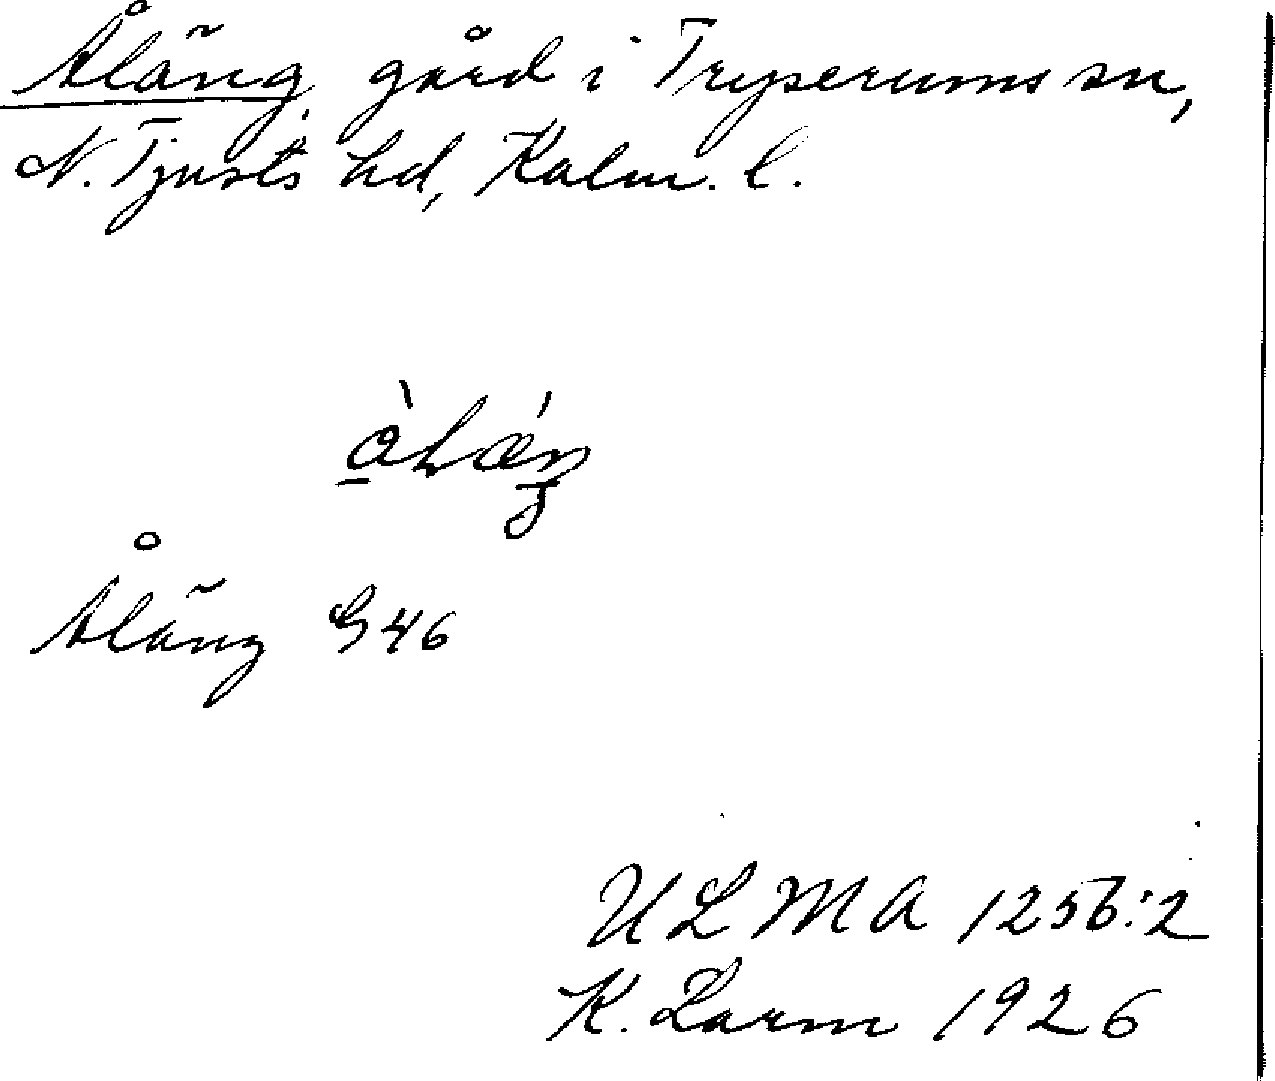 Åläng, gård i Tryserums sn,
N. Tjusts hd, Kalm. l.
Åläng G46
ULMA 1256:2
K. Larm 1926